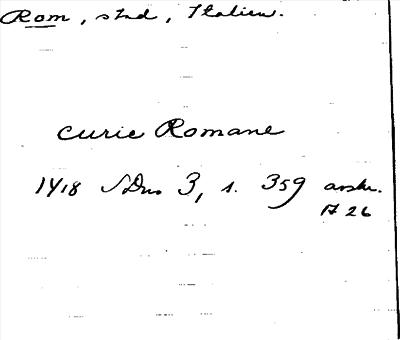 Rom, stad, Italien.
curie Romane
1418 SDns 3, s. 359 avskr.
A 26